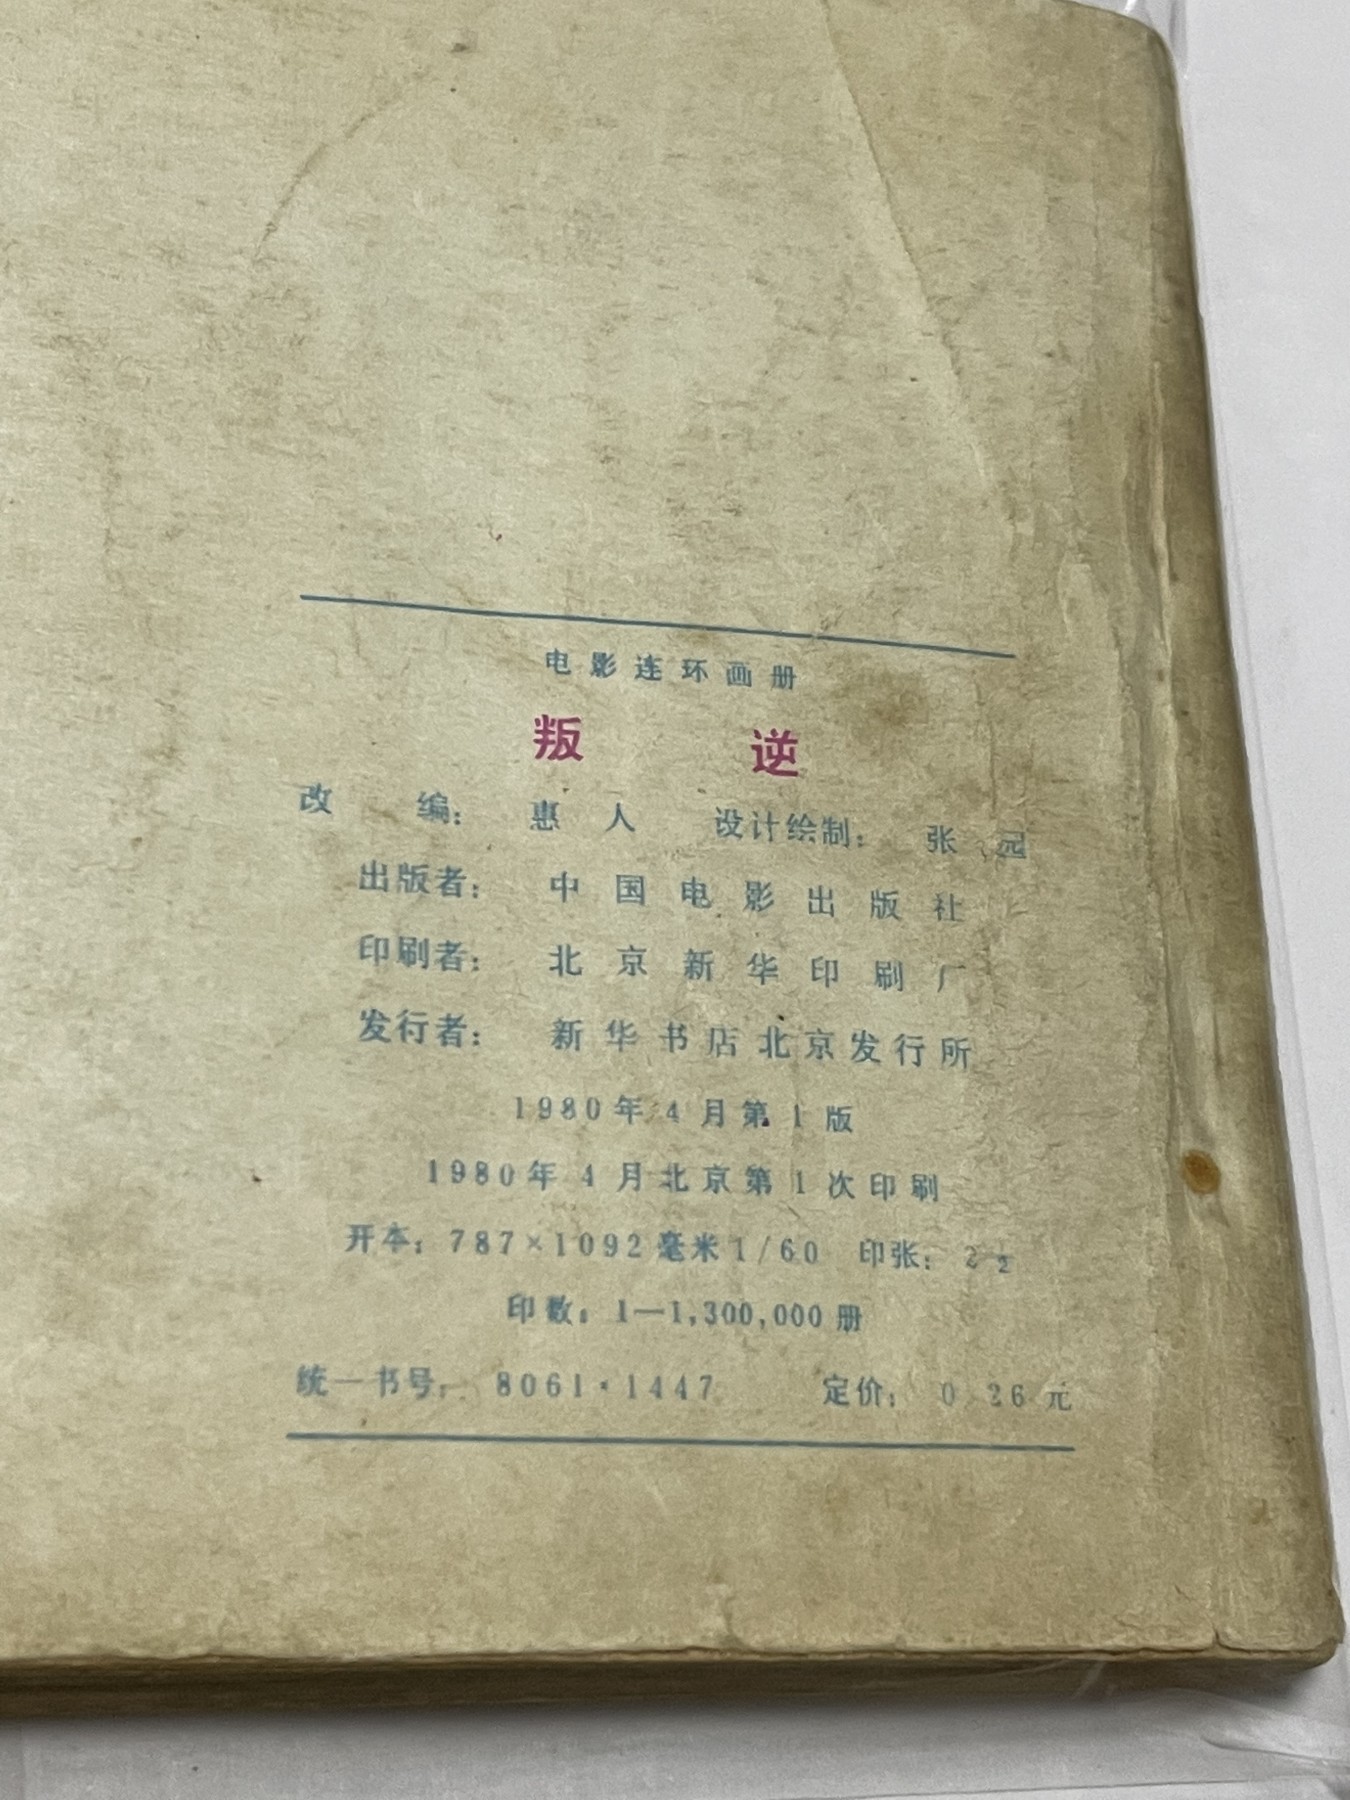 电影连环画册
叛 逆
改 编： 惠 人 设计绘制： 张 园
出版者： 中国电影出版社
印刷者： 北京新华印刷厂
发行者： 新华书店北京发行所
1980年4月第1版
1980年4月北京第1次印刷
开本：787×1092毫米1/60 印张：
印数：1—1,300,000册
统一书号： 8061·1447 定价： 0 26元